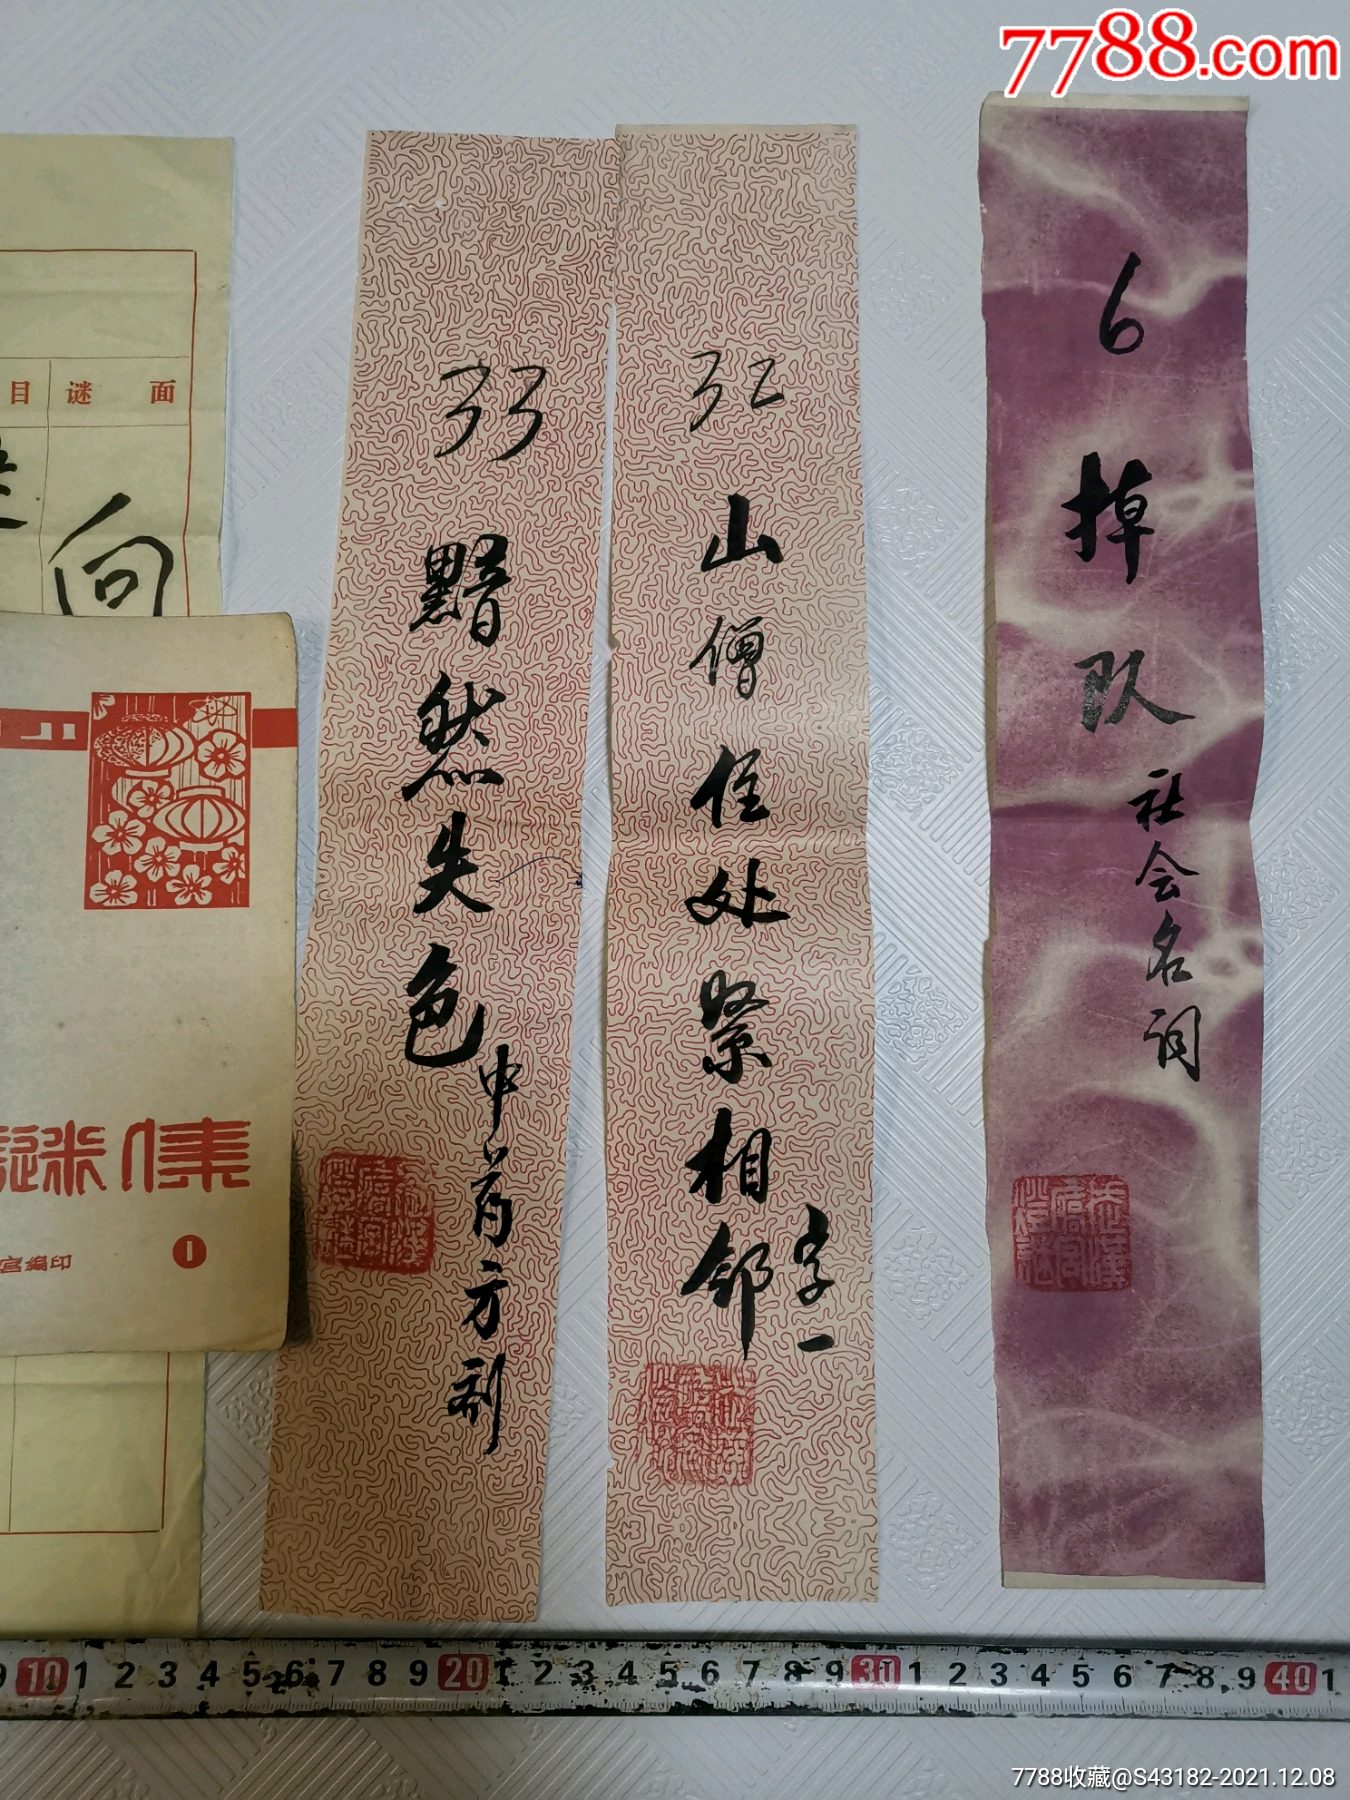 7788.com
6
掉队
社会名词
32
山僧住处紧相邻
字一
33
黯然失色
中药方剂
目
谜面
向
谜集
宫编印
1
9 10 1 2 3 4 5 6 7 8 9 20 1 2 3 4 5 6 7 8 9 30 1 2 3 4 5 6 7 8 9 40 1
7788收藏@S43182-2021.12.08